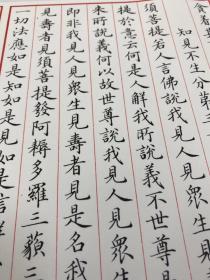 知見不生分第
須菩提若人言佛說我見人見衆生見
提於意云何是人解我所說義不世尊
来所說義何以故世尊說我見人見衆生
即非我見人見衆生見壽者見是名我
見壽者見須菩提發阿耨多羅三藐三
一切法應如是知如是見如是信